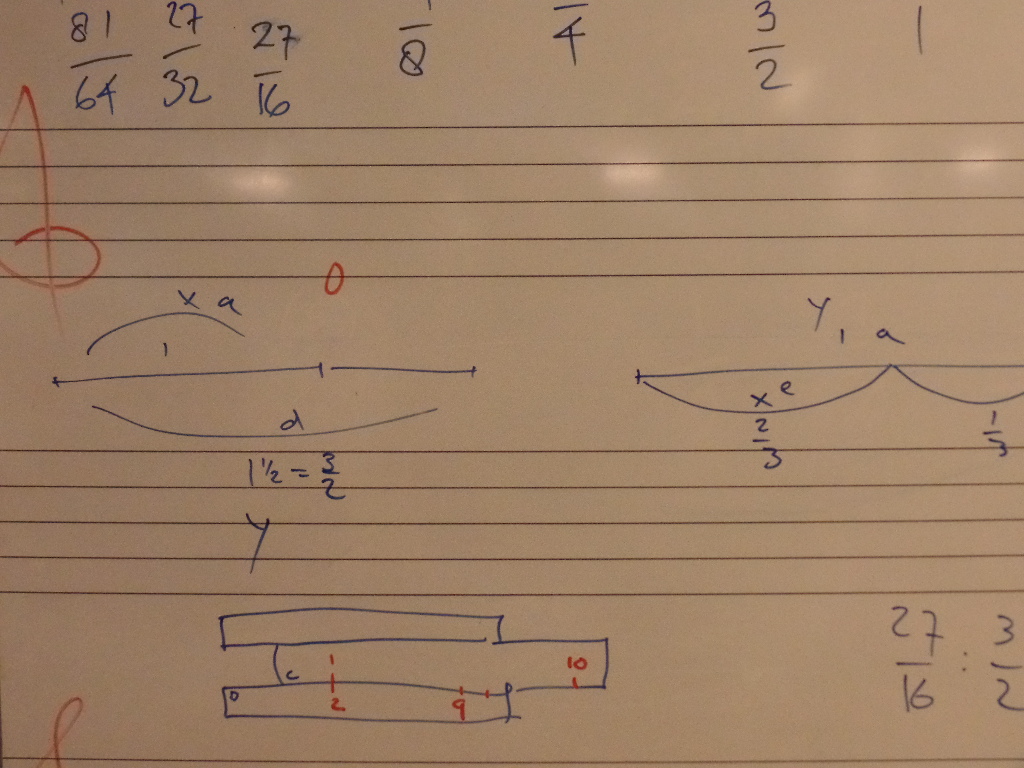 81/64 27/32 27/16 /8 /4 3/2 1
0
x a
1
d
1 1/2 = 3/2
y
y
1 a
x e
2/3 1/3
1 10
C
D 2 9
27/16 : 3/2